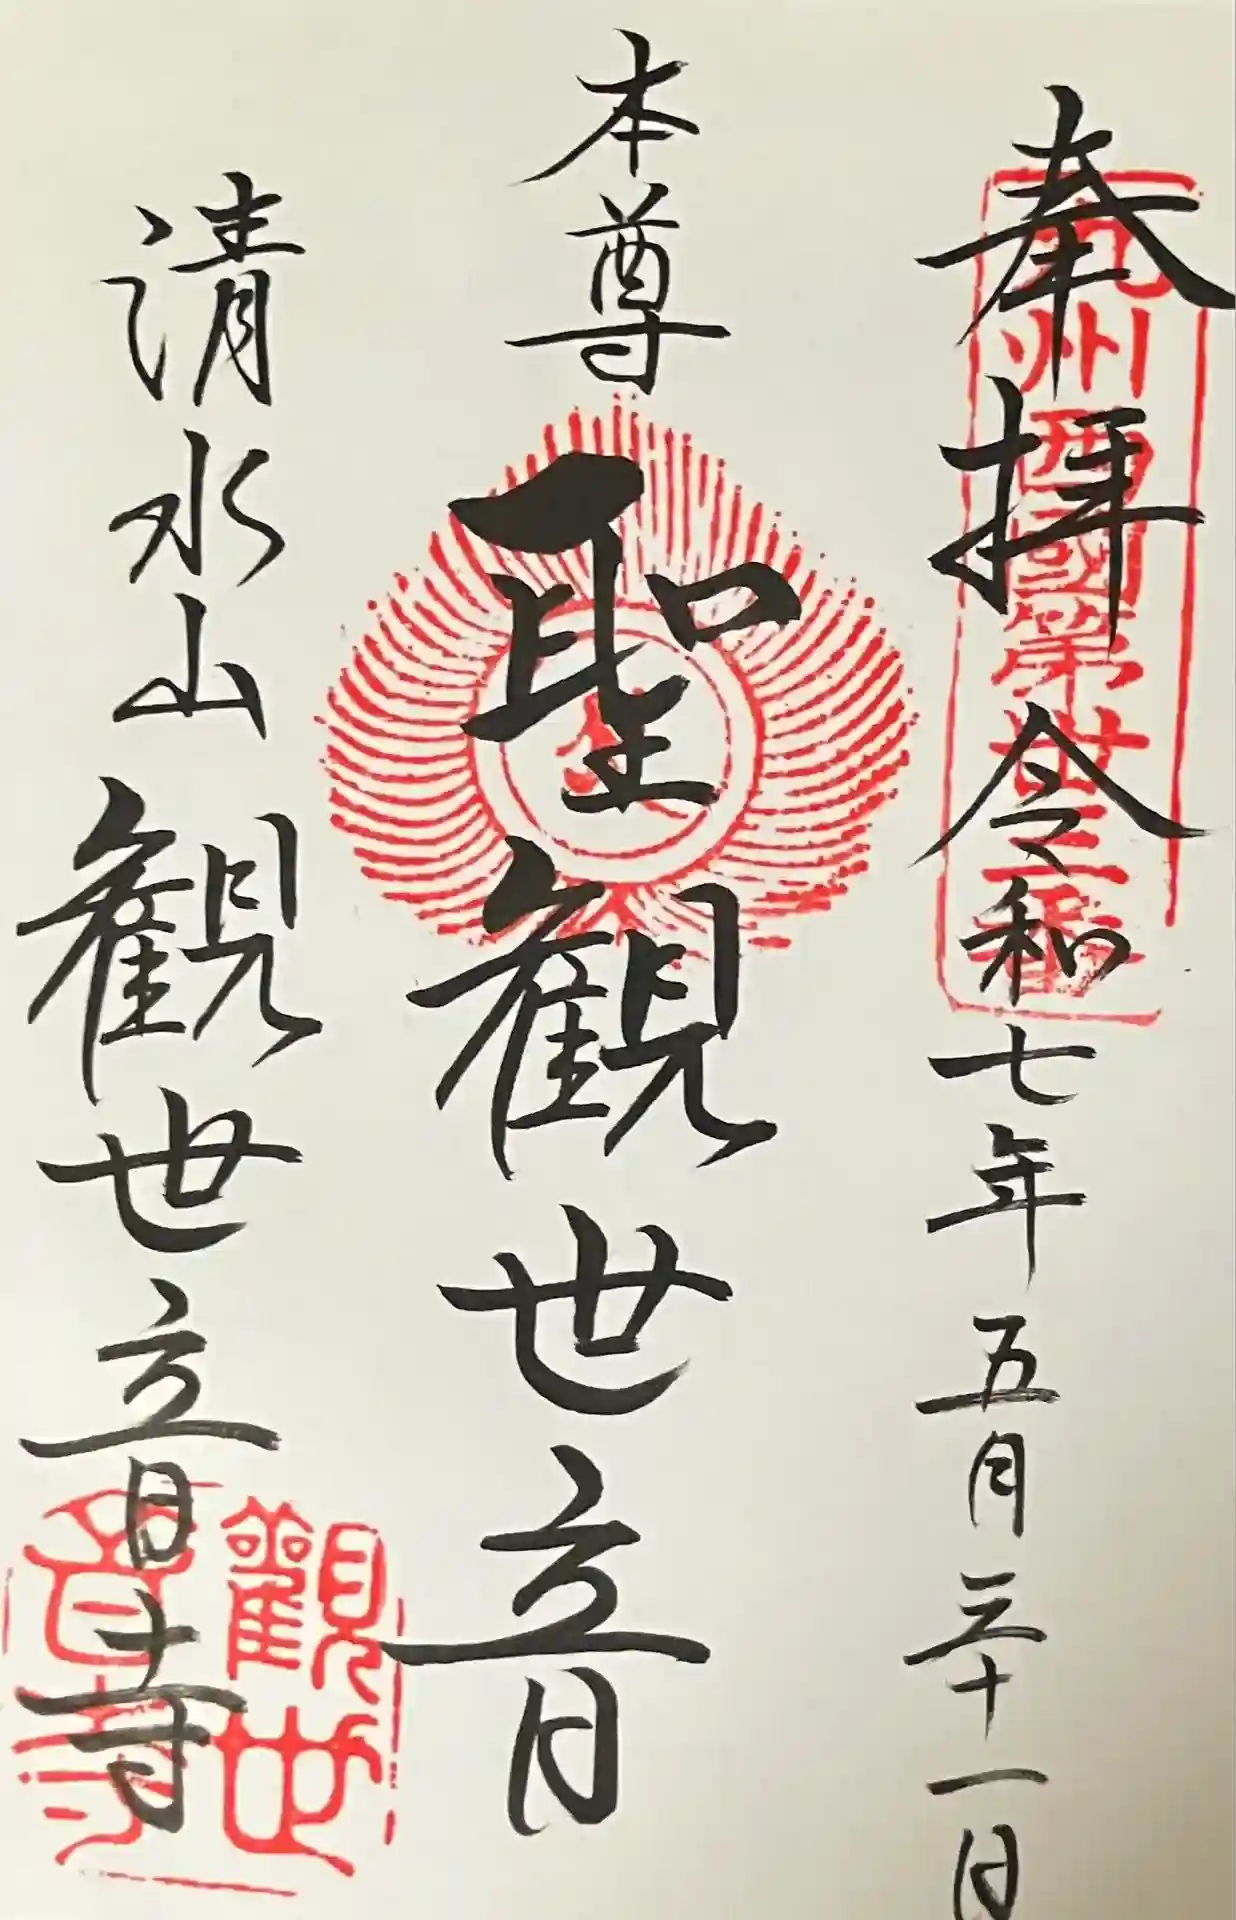 奉拝 令和七年五月三十一日
九州西國第卅三番
本尊
聖観世音
清水山観世音寺
觀世音寺